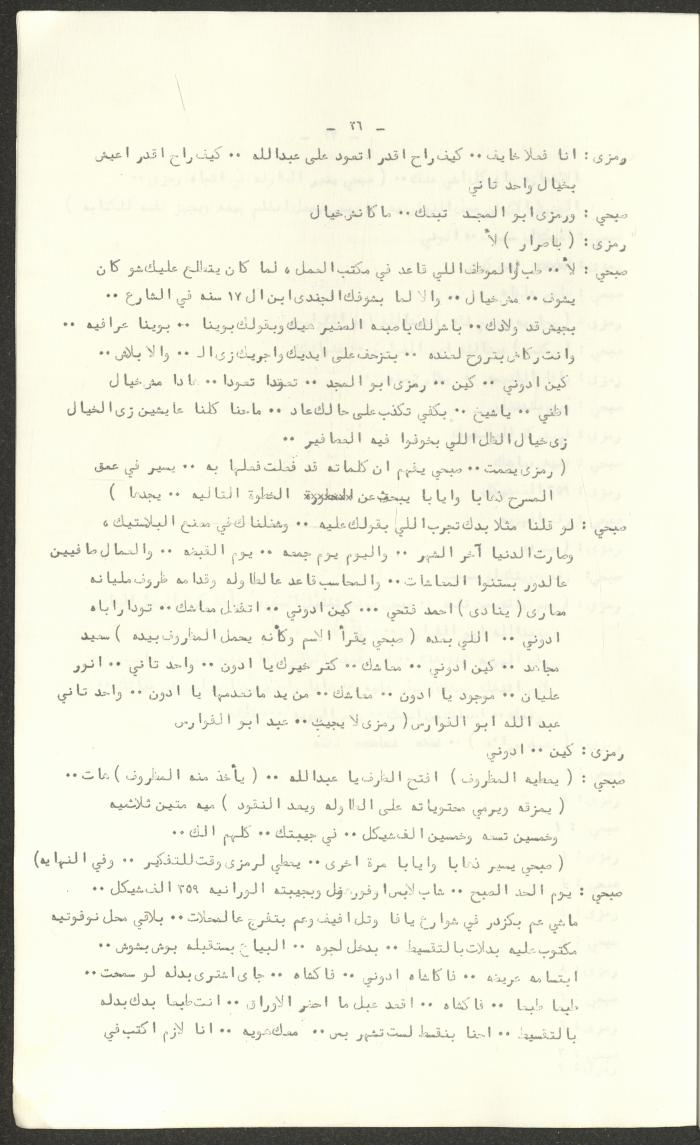 - ٢٦ -
رمزى : انا فعلا خايف ٠٠ كيف راح اقدر اتعود على عبدالله ٠٠ كيف راح اقدر اعيش
بخيال واحد تاني
صبحي : ورمزى ابو المجد تبعك ٠٠ ما كانش خيال
رمزى : ( باصرار ) لأ
صبحي : لأ ٠٠ طب والموظف اللي قاعد في مكتب العمل ، لما كان يتطلع عليك شو كان
يشوف ٠٠ مش خيال ٠٠ والا لما بشوفك الجندى ابن ال ١٧ سنه في الشارع ٠٠
بجيش قد ولادك ٠٠ باشرلك باصبعه الصغير هيك وبقولك بوينا ٠٠ بوينا عرافيه ٠٠
وانت ركاض بتروح لعنده ٠٠ بتزحف على ايديك واجريك زى ال ٠٠ والا بلاش ٠٠
كين ادوني ٠٠ كين ٠٠ رمزى ابو المجد ٠٠ تعودا تعودا ٠٠ هادا مش خيال
اظني ٠٠ يا شيخ ٠٠ بكفي تكذب على حالك عاد ٠٠ ما حنا كلنا عايشين زى الخيال
زى خيال الظل اللي بخوفوا فيه العصافير ٠٠
( رمزى يصمت ٠٠ صبحي يفهم ان كلماته قد فعلت فعلها به ٠٠ يسير في عمق
المسرح ذهابا وايابا يبحث عن الخطوة التاليه ٠٠ يجدها )
صبحي : لو قلنا مثلا بدك تجرب اللي بقولك عليه ٠٠ وشغلناك في مصنع البلاستيك ،
وصارت الدنيا آخر الشهر ٠٠ واليوم يوم جمعه ٠٠ يوم القبضه ٠٠ والعمال صافيين
عالدور بستنوا المعاشات ٠٠ والمحاسب قاعد عالطاوله وقدامه ظروف مليانه
مصارى ( ينادى ) احمد فتحي ٠٠٠ كين ادوني ٠٠ اتفضل معاشك ٠٠ تودا راباه
ادوني ٠٠ اللي بعده ( صبحي يقرأ الاسم وكأنه يحمل المظروف بيده ) سعيد
مجاهد ٠٠ كين ادوني ٠٠ معاشك ٠٠ كتر خيرك يا ادون ٠٠ واحد تاني ٠٠ انور
عليان ٠٠ موجود يا ادون ٠٠ معاشك ٠٠ من يد ما نعدمها يا ادون ٠٠ واحد تاني
عبد الله ابو الفوارس ( رمزى لا يجيب ) ٠٠ عبد ابو الفوارس
رمزى : كين ٠٠ ادوني
صبحي : ( يعطيه المظروف ) افتح الظرف يا عبدالله ٠٠ ( يأخذ منه المظروف ) هات ٠٠
( يمزقه ويرمي محتوياته على الطاوله ويعد النقود ) ميه متين ثلاثميه
وخمسين تسعه وخمسين الف شيكل ٠٠ في جيبتك ٠٠ كلهم الك ٠٠
( صبحي يسير ذهابا وايابا مرة اخرى ٠٠ يعطي لرمزى وقت للتفكير ٠٠ وفي النهايه)
صبحي : يوم الحد الصبح ٠٠ شاب لابس اوفورهول وبجيبته الورانيه ٣٥٩ الف شيكل ٠٠
ماشي عم بكزدر في شوارع يافا وتل افيف وعم بتفرج عالمحلات ٠٠ بلاقي محل نوفوتيه
مكتوب عليه بدلات بالتقسيط ٠٠ بدخل لجوه ٠٠ البياع بستقبله بوش بشوش ٠٠
ابتسامه عريضه ٠٠ فاكاشاه ادوني ٠٠ فاكشاه ٠٠ جاى اشترى بدله لو سمحت ٠٠
طبعا طبعا ٠٠ فاكشاه ٠٠ اقعد عبل ما احضر الاوراق ٠٠ انت طبعا بدك بدله
بالتقسيط ٠٠ احنا بنقسط لست تشهر بس ٠٠ معك هويه ٠٠ انا لازم اكتب في